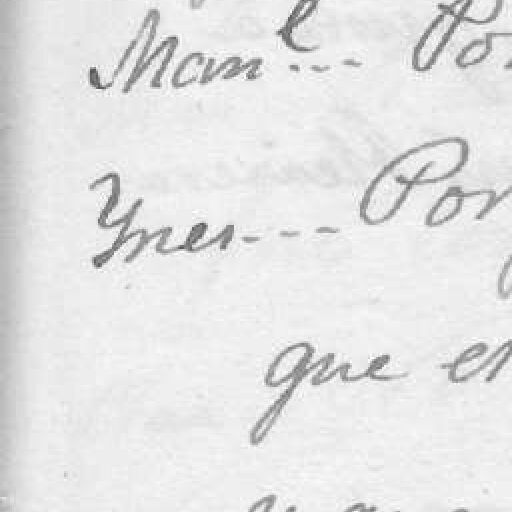 Man^l... Po
Ynes--- Por
que en